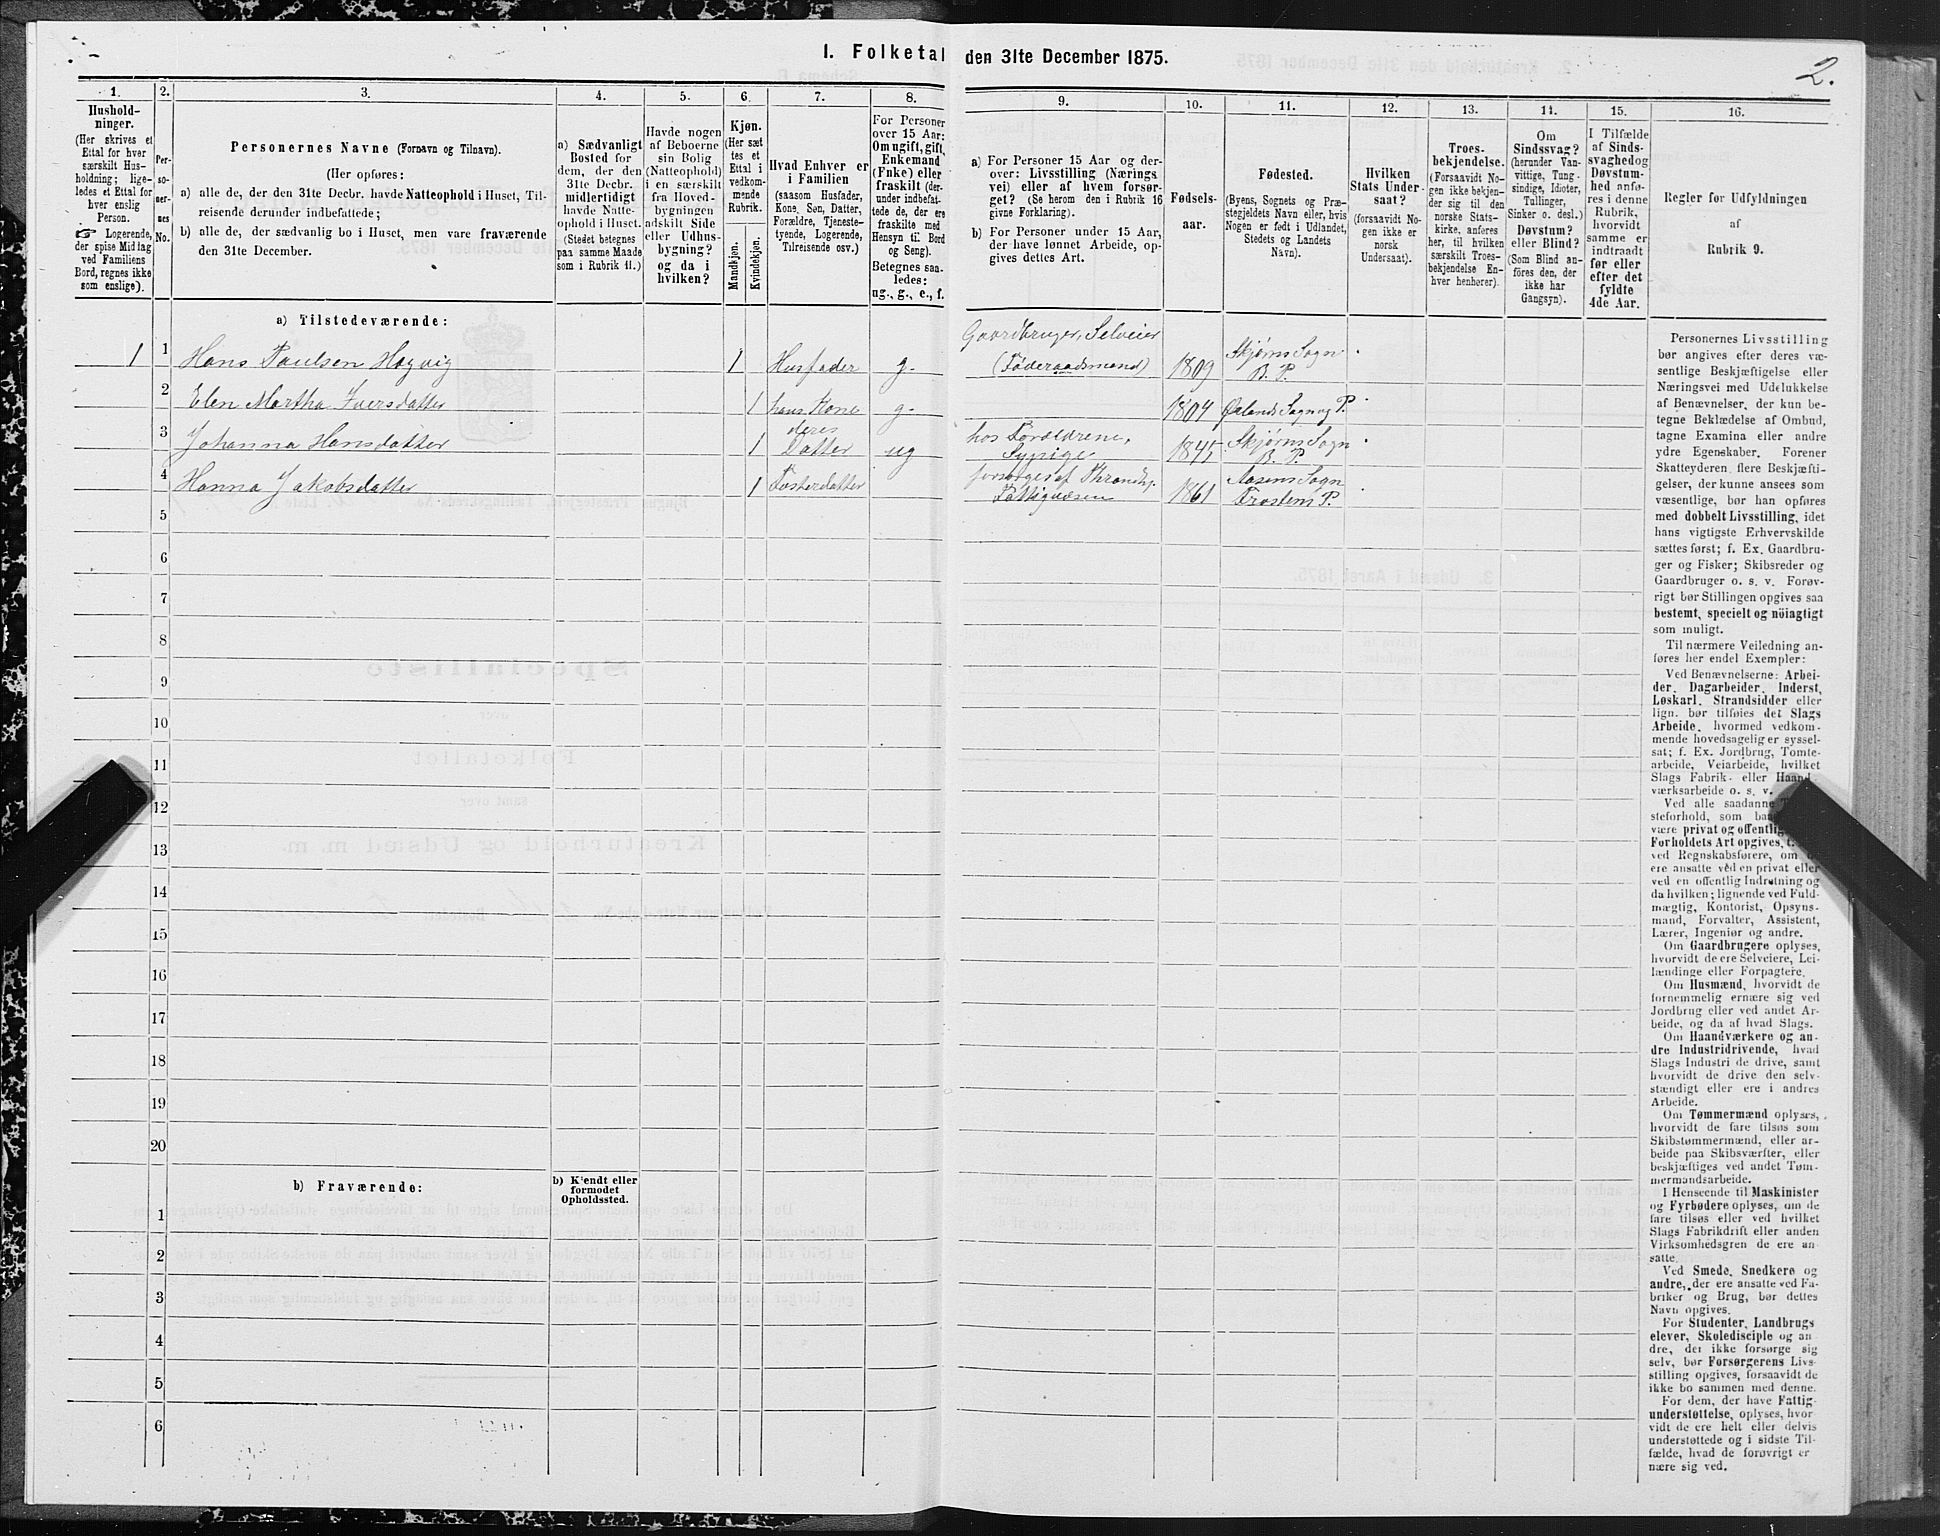 I. Folketal den 31te December 1875.
2.
1.
Hushold-
ninger.
(Her skrives et
Ettal for hver
særskilt Hus-
holdning; lige-
ledes et Ettal for
hver enslig
Person.
Logerende,
der spise Middag
ved Familiens
Bord, regnes ikke
som enslige).
2.
Per-
so-
ner-
nes
No.
3.
Personernes Navne (Fornavn og Tilnavn).
(Her opføres:
a) alle de, der den 31te Decbr. havde Natteophold i Huset, Til-
reisende derunder indbefattede;
b) alle de, der sædvanlig bo i Huset, men vare fraværende
den 31te December.
4.
a) Sædvanligt
Bosted for
dem, der den
31te Decbr.
midlertidigt
havde Natte-
ophold i Huset.
(Stedet betegnes
paa samme Maade
som i Rubrik 11.)
5.
Havde nogen
af Beboerne
sin Bolig
(Natteophold)
i en særskilt
fra Hoved-
bygningen
adskilt Side
eller Udhus-
bygning?
og da i
hvilken?
6.
Kjøn.
(Her sæt
tes et
Ettal i
vedkom-
mende
Rubrik.
Mandkjøn.
Kvindekjøn.
7.
Hvad Enhver er
i Familien
(saasom Husfader,
Kone, Søn, Datter,
Forældre, Tjeneste-
tyende, Logerende,
Tilreisende osv.)
8.
For Personer
over 15 Aar:
Om ugift, gift,
Enkemand
(Enke) eller
fraskilt (der-
under indbefat-
tede de, der ere
fraskilte med
Hensyn til Bord
og Seng).
Betegnes saa-
ledes:
ug., g., e., f.
9.
a) For Personer 15 Aar og der-
over: Livsstilling (Nærings
vei) eller af hvem forsør-
get? (Se herom den i Rubrik 16
givne Forklaring).
b) For Personer under 15 Aar,
der have lønnet Arbeide, op-
gives dettes Art.
10.
Fødsels-
aar.
11.
Fødested.
(Byens, Sognets og Præ-
stegjeldets Navn eller, hvis
Nogen er født i Udlandet,
Stedets og Landets
Navn).
12.
Hvilken
Stats Under-
saat?
(forsaavidt No-
gen ikke er
norsk
Undersaat).
13.
Troes-
bekjendelse.
(Forsaavidt No-
gen ikke bekjen-
der sig til den
norske Stats-
kirke, anføres
her, til hvilken
særskilt Troes-
bekjendelse En-
hver henhører).
14.
Om
Sindssvag?
(herunder Van-
vittige, Tung-
sindige, Idioter,
Tullinger,
Sinker o. desl.)
Døvstum?
eller Blind?
(Som Blind an-
føres den, der
ikke har
Gangsyn).
15.
I Tilfælde
af Sinds-
svaghed og
Døvstum-
hed anfø-
res i denne
Rubrik,
hvorvidt
samme er
indtraadt
før eller
efter det
fyldte
4de Aar.
16.
Regler for Udfyldningen
af
Rubrik 9.
a) Tilstedeværende:
1 1 Hans Paulsen Hogvig 1 Husfader g. Gaardbruger, Selveier
(Føderaadsmand) 1809 Skjørns Sogn
B. P.
2 Elen Martha Iversdatter 1 hans Kone g. 1804 Ørlands Sogn og P.
3 Johanna Hansdatter 1 deres
Datter ug hos Forældrene,
Sypige 1845 Skjørns Sogn
B. P.
4 Hanna Jakobsdatter 1 Fosterdatter forsørges af Throndhj.
Fattigvæsen 1861 Aasens Sogn
Frostens P.
5
6
7
8
9
10
11
12
13
14
15
16
17
18
19
20
b) Fraværende:
b) Kjendt eller
formodet
Opholdssted.
1
2
3
4
5
6
Personernes Livsstilling
bør angives efter deres væ-
sentlige Beskjæftigelse eller
Næringsvei med Udelukkelse
af Benævnelser, der kun be-
tegne Beklædelse af Ombud,
tagne Examina eller andre
ydre Egenskaber. Forener
Skatteyderen flere Beskjæfti-
gelser, der kunne ansees som
væsentlige, bør han opføres
med dobbelt Livsstilling, idet
hans vigtigste Erhvervskilde
sættes først; f. Ex. Gaardbru-
ger og Fisker; Skibsreder og
Gaardbruger o. s. v. Forøv-
rigt bør Stillingen opgives saa
bestemt, specielt og nöiagtigt
som muligt.
Til nærmere Veiledning an-
føres her endel Exempler:
Ved Benævnelserne: Arbei-
der, Dagarbeider, Inderst,
Løskarl, Strandsidder eller
lign. bør tilføies det Slags
Arbeide, hvormed vedkom-
mende hovedsagelig er syssel-
sat; f. Ex. Jordbrug, Tomte-
arbeide, Veiarbeide, hvilket
Slags Fabrik- eller Haand-
værksarbeide o. s. v.
Ved alle saadanne
steforhold, som
være privat og offentlig
Forholdets Art opgives,
ved Regnskabsførere, om
ere ansatte ved en privat eller
ved en offentlig Indretning og
da hvilken; lignende ved Fuld-
mægtig, Kontorist, Opsyns-
mand, Forvalter, Assistent,
Lærer, Ingeniør og andre.
Om Gaardbrugere oplyses,
hvorvidt de ere Selveiere, Lei-
lændinge eller Forpagtere.
Om Husmænd, hvorvidt de
fornemmelig ernære sig ved
Jordbrug eller ved andet Ar-
beide, og da af hvad Slags.
Om Haandværkere og an-
dre Industridrivende, hvad
Slags Industri de drive, samt
hvorvidt de drive den selv-
stændigt eller ere i andres
Arbeide.
Om Tømmermænd oplyses,
hvorvidt de fare tilsøs som
Skibstømmermænd, eller ar-
beide paa Skibsværfter, eller
beskjæftiges ved andet Tøm-
mermandsarbeide.
I Henseende til Maskinister
og Fyrbødere oplyses, om de
fare tilsøs eller ved hvilket
Slags Fabrikdrift eller anden
Virksomhedsgren de ere an-
satte.
Ved Smede, Snedkere og
andre, der ere ansatte ved Fa-
briker og Brug, bør dettes
Navn opgives.
For Studenter, Landbrugs
elever, Skoledisciple og an
dre, der ikke forsørge sig
selv, bør Forsørgerens Livs-
stilling opgives, forsaavidt de
ikke bo sammen med denne.
For dem, der have Fattig-
understøttelse, oplyses, hvor
vidt de ere helt eller delvis
understøttede og i sidste Til-
fælde, hvad de forøvrigt er
nære sig ved.